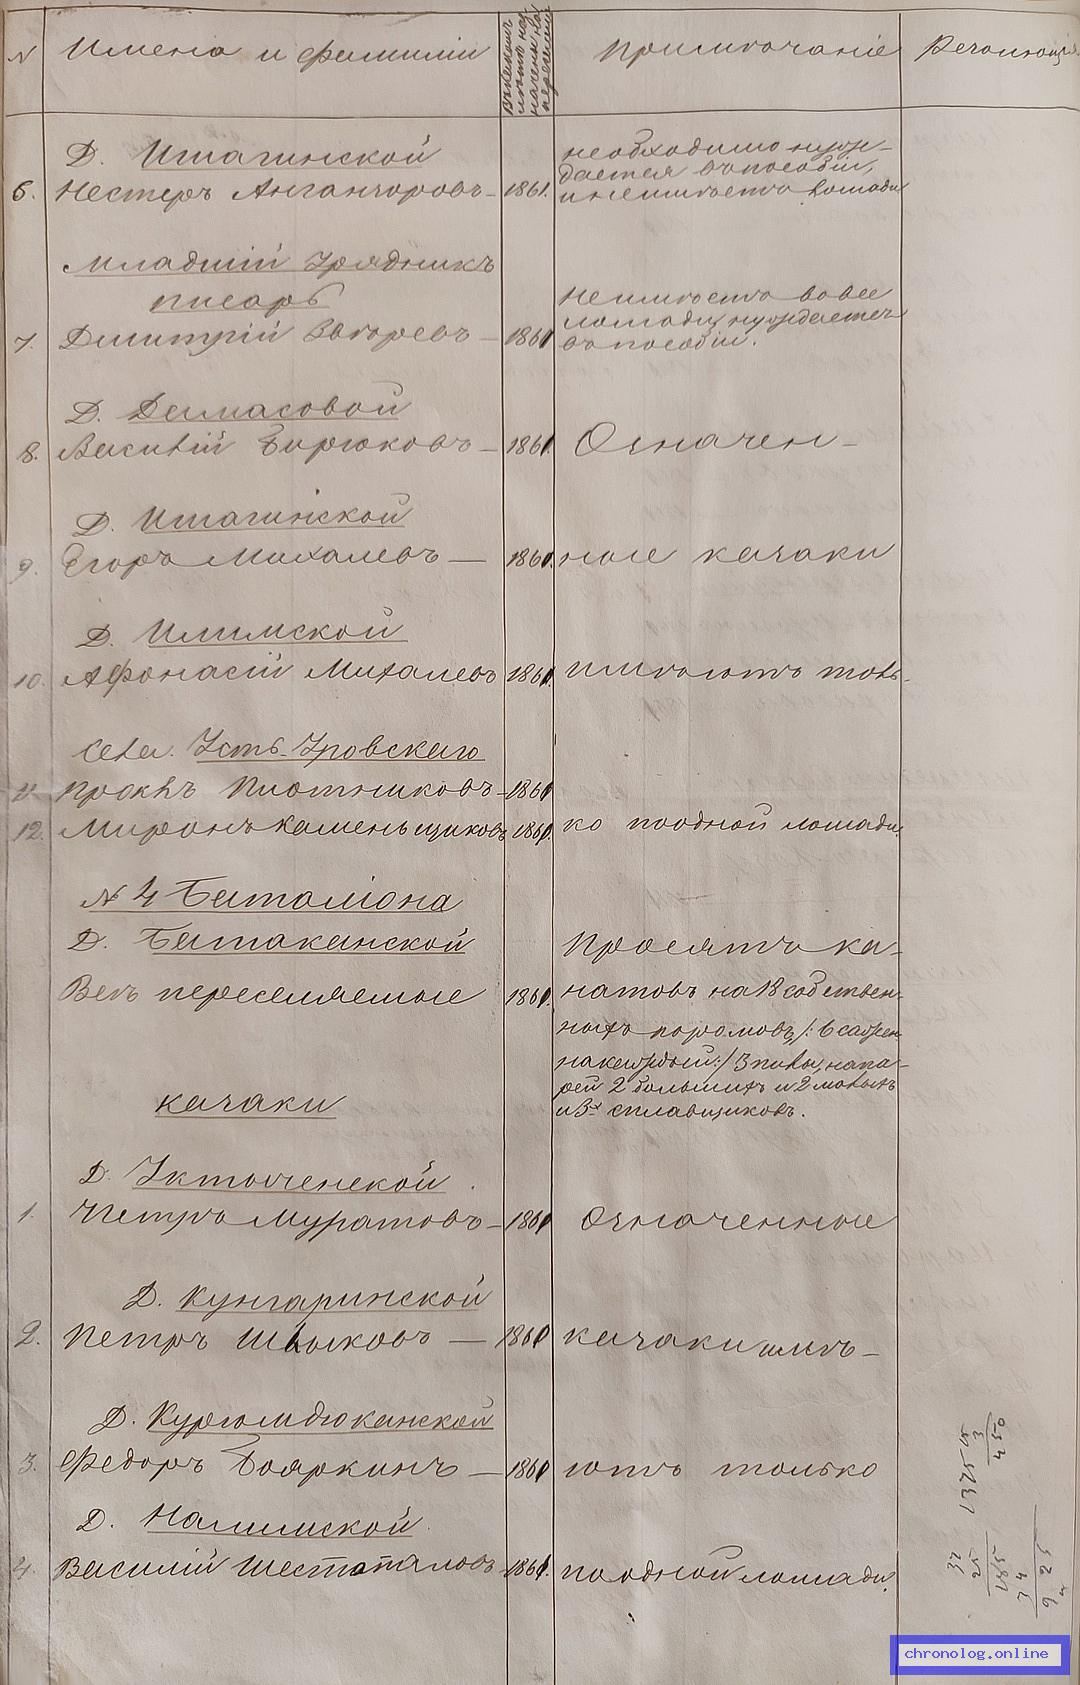 N Имена и фамиліи
Въ какомъ
лѣто наз
начены на
переселеніе
Примѣчаніе
Резолюція
Д. Ишагинской
6. Нестеръ 1861.
необходимо нуж-
дается въ пособіи,
и неимѣетъ лошади
Младшій Урядникъ
писарь
7. Дмитрій 1861
Неимѣетъ вовсе
лошади, нуждается
въ пособіи.
Д. Демасовой
8. Василій Бирюковъ — 1861.
Означен-
Д. Ишагинской
9. Егоръ Михалевъ — 1861.
ные казаки
Д. Илимской
10. Афонасій Михалевъ 1861.
имѣютъ толь-
Села. Усть-Уровскаго
11. Прокѣъ Плотниковъ - 1861
12. Миронъ Каменьщиковъ 1861.
ко поодной лошади.
N 4 Баталіона
Д. Батаканской
Всѣ переселяемые 1861.
казаки
Просятъ ка-
натовъ на 18 собствен-
ныхъ паромовъ /: 6 сажен
на каждый :/ 3 пилы, напа-
рей 2 большихъ и 2 малыхъ
и 3х сплавщиковъ.
Д. Уктыченской.
1. Петръ Муратовъ — 1861
Означенные
Д. Кунгаринской
2. Петръ Шлыковъ — 1861
казаки имѣ-
Д. Курюмдюканской
3. Федоръ Бояркинъ — 1861
ютъ только
Д. Налимской
4. Василій Шестопаловъ 1861.
поодной лошади.
1375
3
450
37
25
185
74
925
chronolog.online